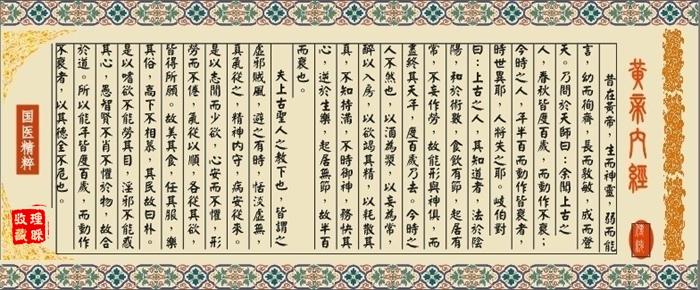 黄帝内經
昔在黄帝，生而神靈，弱而能
言，幼而徇齊，長而敦敏，成而登
天。乃問於天師曰：余聞上古之
人，春秋皆度百歲，而動作不衰；
今時之人，年半百而動作皆衰者，
時世異耶，人將失之耶。岐伯對
曰：上古之人，其知道者，法於陰
陽，和於術數，食飲有節，起居有
常，不妄作勞，故能形與神俱，而
盡終其天年，度百歲乃去。今時之
人不然也，以酒為漿，以妄為常，
醉以入房，以欲竭其精，以耗散其
真，不知持滿，不時御神，務快其
心，逆於生樂，起居無節，故半百
而衰也。
夫上古聖人之教下也，皆謂之
虛邪賊風，避之有時，恬淡虛無，
真氣從之，精神内守，病安從來。
是以志閒而少欲，心安而不懼，形
勞而不倦，氣從以順，各從其欲，
皆得所願。故美其食，任其服，樂
其俗，高下不相慕，其民故曰朴。
是以嗜欲不能勞其目，淫邪不能惑
其心，愚智賢不肖不懼於物，故合
於道。所以能年皆度百歲，而動作
不衰者，以其德全不危也。
国医精粹
理睬
收藏